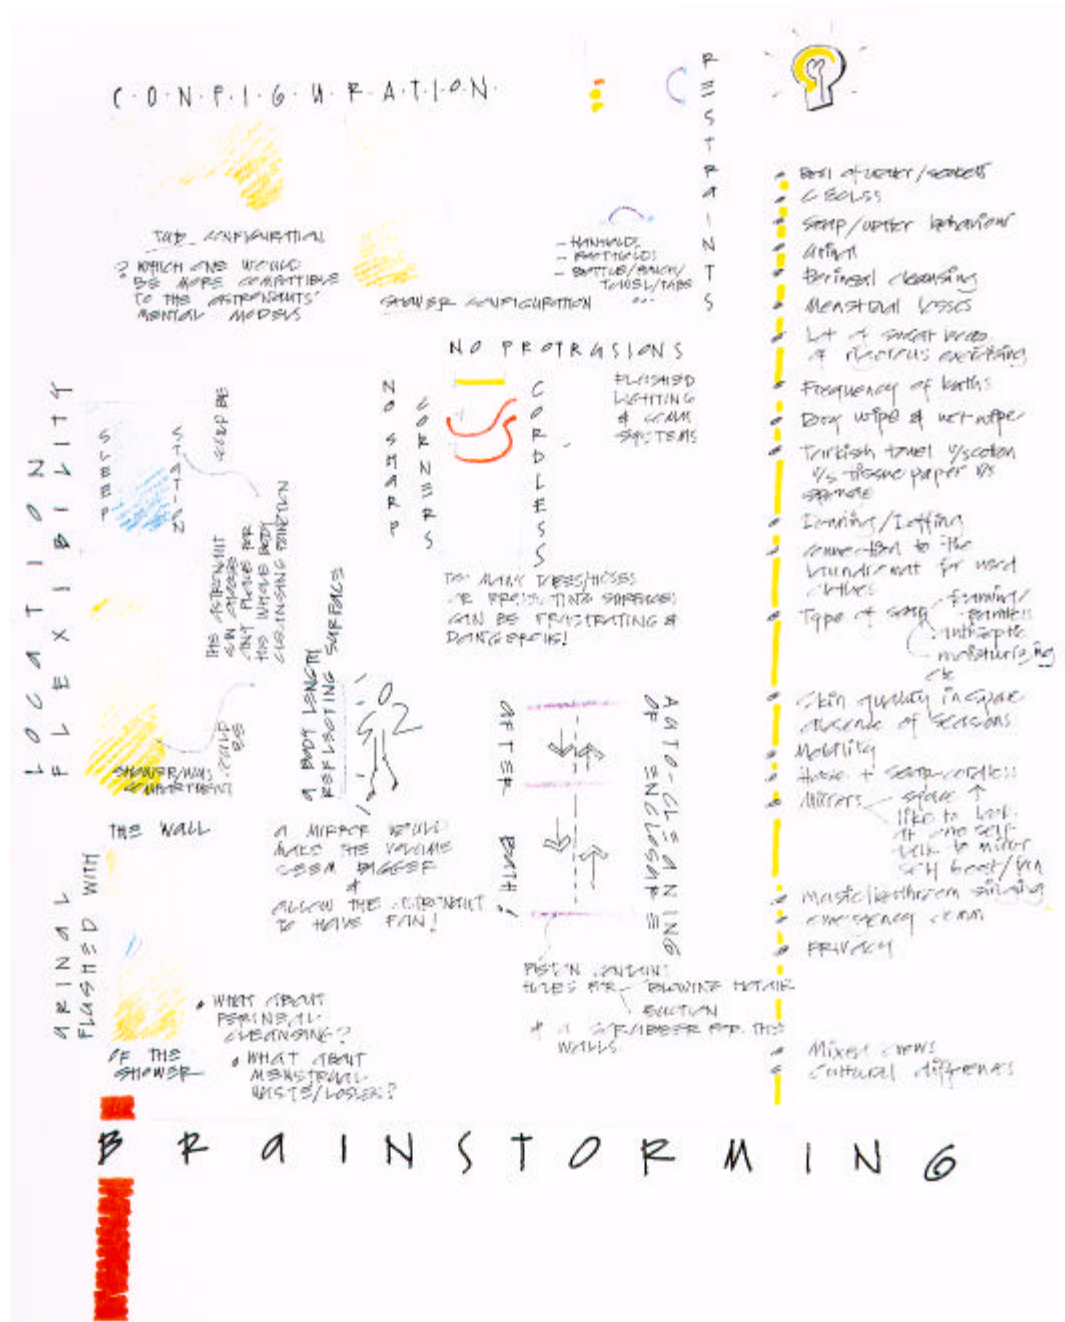 C.O.N.F.I.G.U.R.A.T.I.O.N.
TUB CONFIGURATION
? WHICH ONE WOULD
BE MORE COMPATIBLE
TO THE ASTRONAUTS'
MENTAL MODELS
SHOWER CONFIGURATION
RESTRAINTS
- HANDHOLDS
- FOOTHOLDS
TOWEL/TABS
...
NO PROTRUSIONS
NO SHARP
CORNERS
CORDLESS
FLUSHED
LIGHTING
& COMM
SYSTEMS
TOO MANY TUBES/HOSES
OR PROJECTING SURFACES
CAN BE FRUSTRATING &
DANGEROUS!
LOCATION
FLEXIBILITY
SLEEP
STATION
COULD BE
THE ASTRONAUT
CAN CHOOSE
ANY PLACE FOR
HIS WHOLE BODY
CLEANSING FUNCTION
COULD
BE
COMPARTMENT
A BODY LENGTH
REFLECTING SURFACE
A MIRROR WOULD
MAKE THE VOLUME
SEEM BIGGER
&
ALLOW THE ASTRONAUT
TO HAVE FUN!
AUTO-CLEANING
OF ENCLOSURE
AFTER BATH!
PISTON
HOLES FOR BLOWING HOT AIR
SUCTION
& A SCRUBBER FOR THE
WALLS
URINAL
FLUSHED WITH
THE WALL
OF THE
SHOWER
• WHAT ABOUT
PERINEAL
CLEANSING?
• WHAT ABOUT
MENSTRUAL
WASTE/LOSSES?
CELSS
Soap/water behaviour
Urinal
Perineal cleansing
Menstrual losses
Lot of sweat
of rigorous exercising
Frequency of baths
Dry wipe & wet wipe
Turkish towel v/s cotton
v/s tissue paper v/s
sponge
Donning/Doffing
connection to the
laundromat for used
clothes
Type of soap foaming/
foamless
antiseptic
moisturizing
etc
Skin quality in space
absence of seasons
Mobility
Hose + soap-cordless
Mirrors space ↑
like to look
at one self
talk to mirror
self boost/fun
music/bathroom singing
emergency comm
PRIVACY
Mixed crews
Cultural differences
BRAINSTORMING